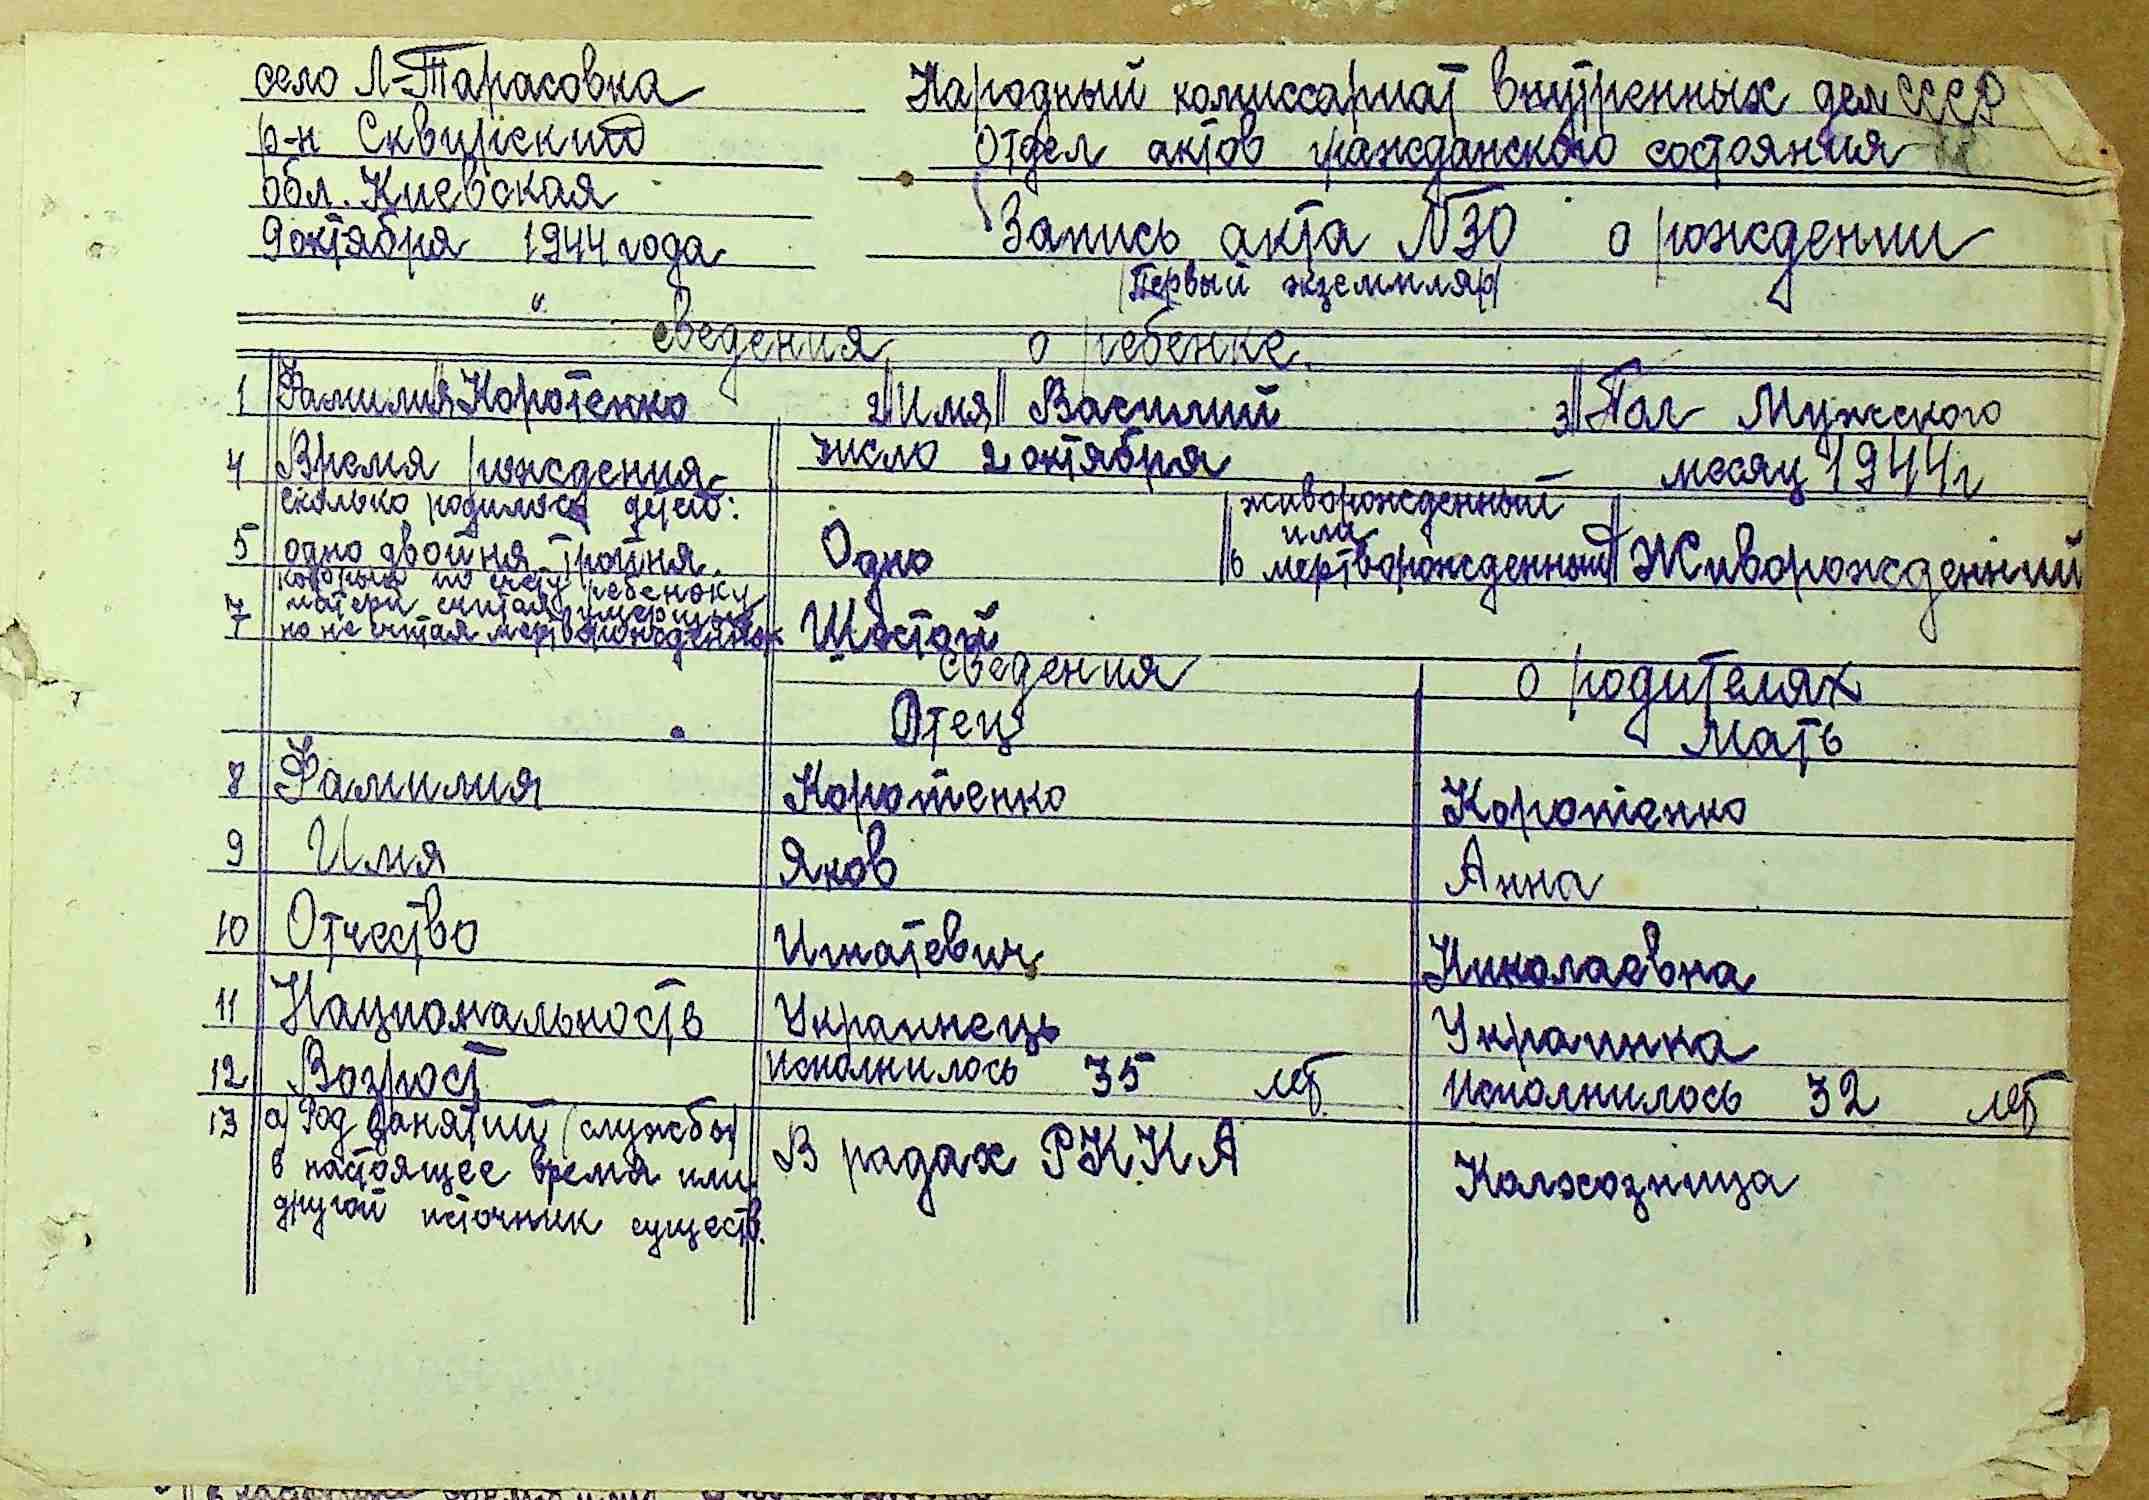 село Л-Тарасовка
р-н Сквирский
обл. Киевская
9 октября 1944 года
Народный комиссариат внутренных дел СССР
Отдел актов гражданского состояния
Запись акта №30 о рождении
(Первый экземпляр)
сведения о ребенке
1 Фамилия Коротенко 2 Имя Василий 3 Пол Мужского
4 Время рождения число 2 октября месяц 1944 г
5 сколько родилось детей:
одно двойня тройня. Одно
6 живорожденный
или
мертворожденный Живорожденний
7 который по счету ребенок у
матери считая умерших
но не считая мертворожденных Шостой
сведения о родителях
Отец Мать
8 Фамилия Коротенко Коротенко
9 Имя Яков Анна
10 Отчество Игнатевич Николаевна
11 Национальность Украинець Украинка
12 Возрост исполнилось 35 лет исполнилось 32 лет
13 а) Род занятий (службы)
в настоящее время или
другой источник существ. В радах РККА Колхозница